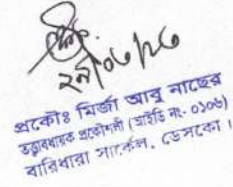 ২৭/০৮/২৩
প্রকৌঃ মির্জা আবু নাছের
তত্ত্বাবধায়ক প্রকৌশলী (আইডি নং- ০১০৬)
বারিধারা সার্কেল, ডেসকো।